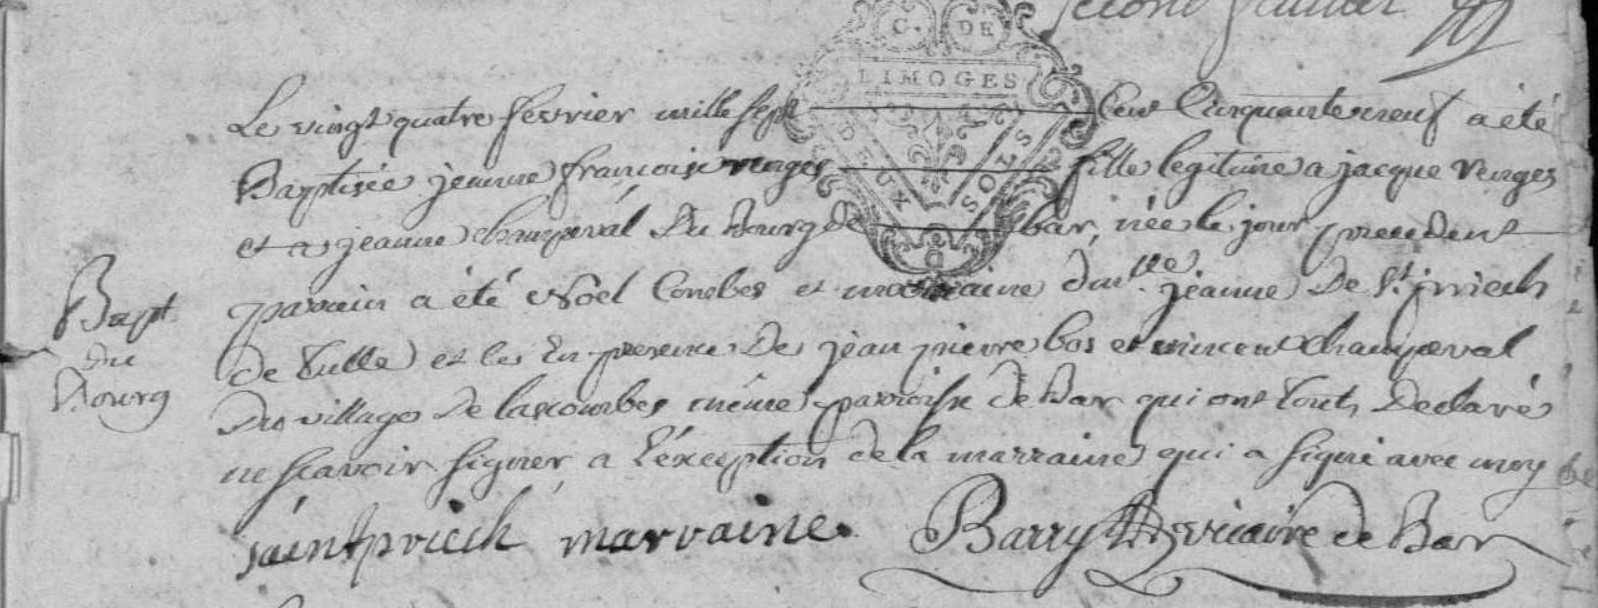 second
G. DE
LIMOGES
DEUX SOLS
Le vingt quatre fevrier mille sept cent Cinquante neuf a été
Baptisée jeanne francoise verges fille legitime a jacque verges
et a jeanne champeval Du Bourg de bar, née le jour precedent
parrain a été Noel Combes et marraine dmlle jeanne De St. priech
de Tulle et les En presence De jean pierre bos et vincent Champeval
Du village De lascombes même parroisse de Bar qui ont touts Declaré
ne scavoir signer a l'éxception de la marraine qui a signé avec moy
Bapt
du
Bourg
saintpriech marraine. Barry vicaire de Bar